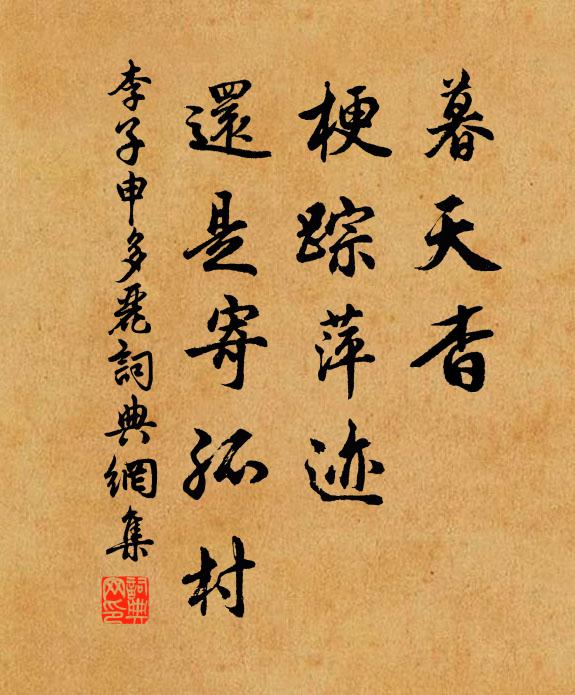 暮天杳
梗踪萍迹
還是寄孤村
李子申多麗詞典網集
詞典网印